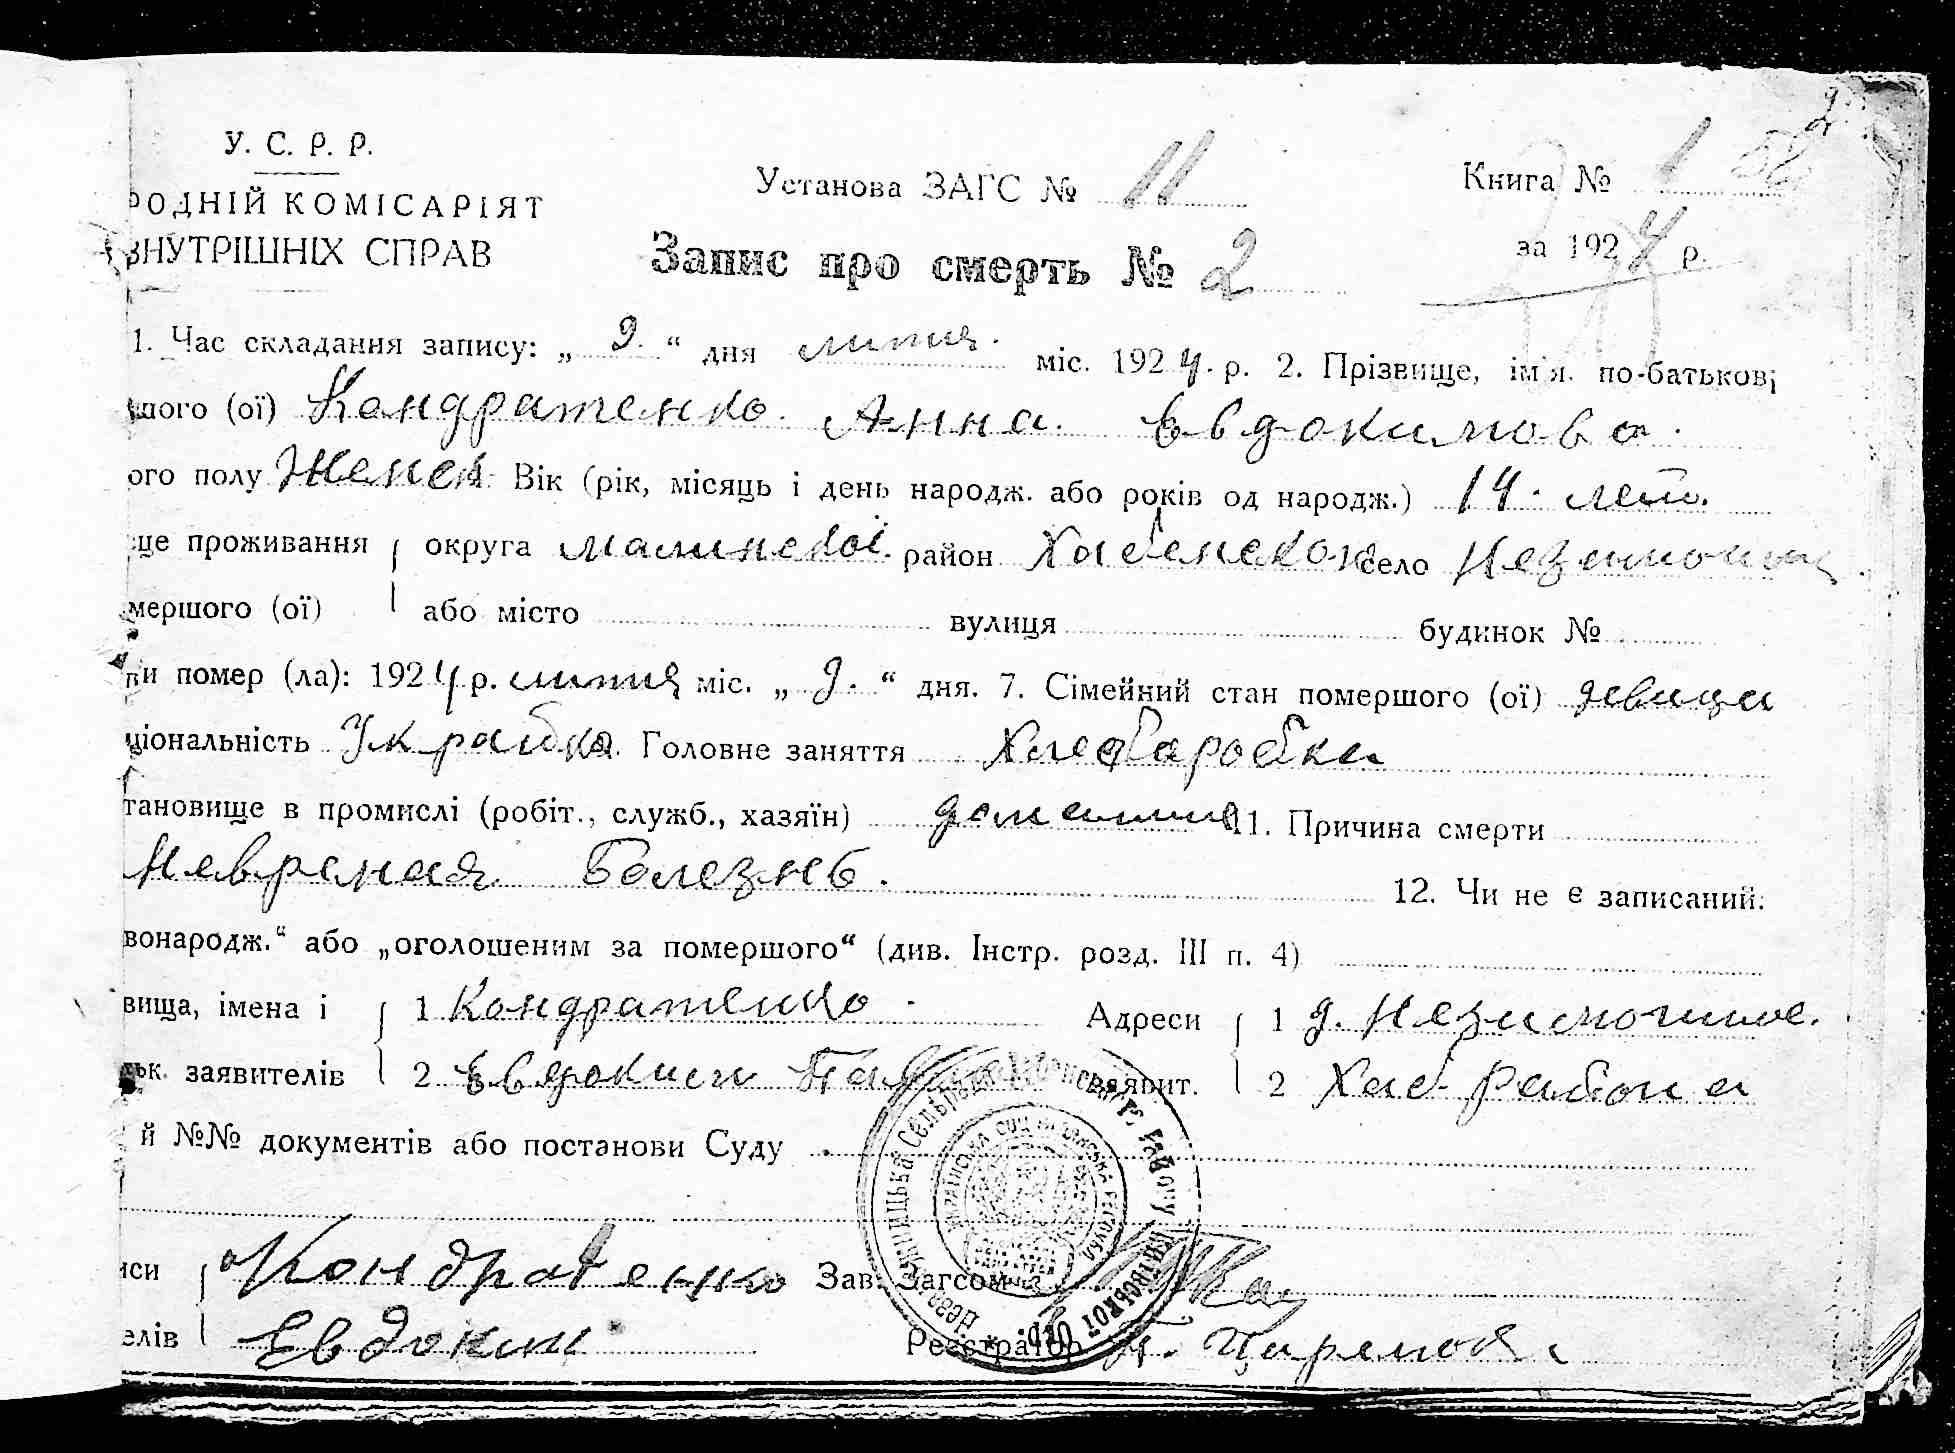 2
У. С. Р. Р.
РОДНІЙ КОМІСАРІЯТ
ВНУТРІШНІХ СПРАВ
Установа ЗАГС № 11
Книга № 1
Запис про смерть № 2
за 1924 р.
1. Час складання запису: „ 9. “ дня липня. міс. 1924. р. 2. Прізвище, ім'я. по-батькові
шого (ої) Кондратенко. Анна. Евдокимова.
ого полу Женск. Вік (рік, місяць і день народж. або років од народж.) 14. лет.
це проживання { округа Малинської. район Хабенской село
мершого (ої) або місто вулиця будинок №
ли помер (ла): 1924 р. липня міс. „ 9. “ дня. 7. Сімейний стан помершого (ої) девица
ціональність Головне заняття Хлеборобка
тановище в промислі (робіт., служб., хазяїн) 11. Причина смерти
Неврная Болезнь.
12. Чи не є записаний:
вонародж.“ або „оголошеним за помершого“ (див. Інстр. розд. III п. 4)
вища, імена і { 1 Кондратенко. Адреси { 1 д.
ьк. заявителів 2 Евдоким заявит. 2 Хаб района
й №№ документів або постанови Суду
иси { Кондратенко Зав. Загсом
елів Евдоким Реєстратор